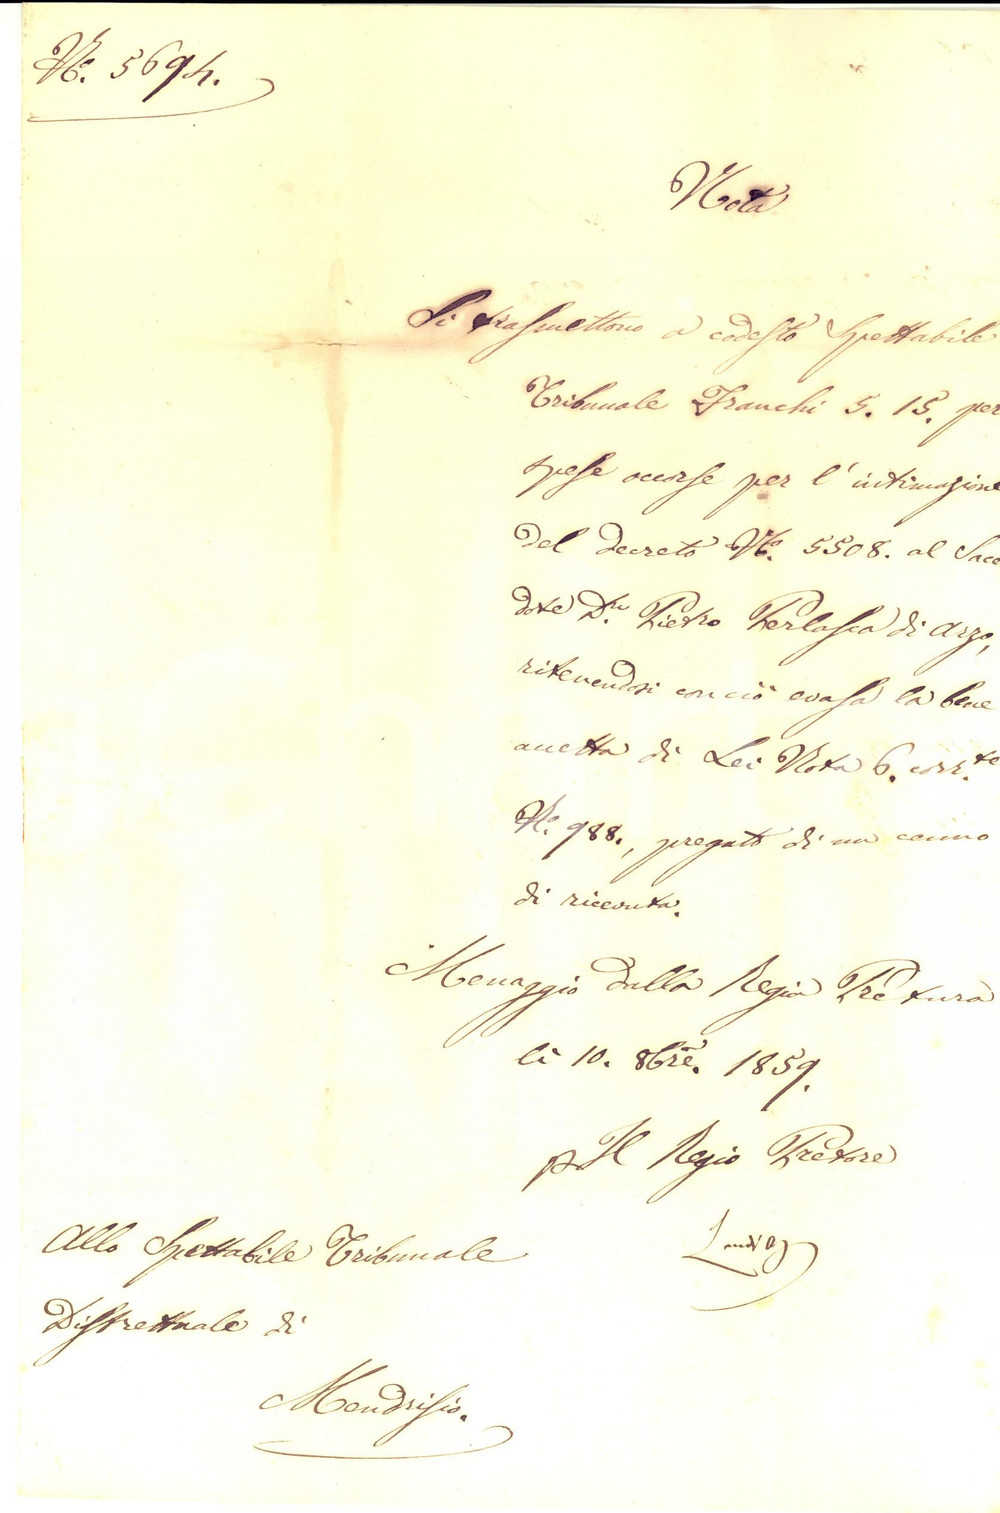 No. 5694.
Nota
Si trasmettono a codesto Spettabile
Tribunale Franchi 5. 15. per
spese occorse per l'intimazione
del decreto No. 5508. al Sace
dote Dn. Pietro Perlasca di Arzo,
ritenendosi con ciò evasa la bene
accetta di Lei Nota 6. corr.te
No. 988., pregato di un cenno
di riccevuta.
Menaggio dalla Regia Pretura
li 10. 8bre. 1859.
p Il Regio Pretore
Allo Spettabile Tribunale
Distrettuale di
Mendrisio.